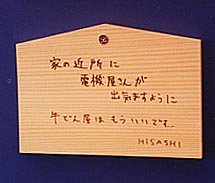 家の近所に
電機屋さんが
出気ますように
牛どん屋は もういいです。
HISASHI